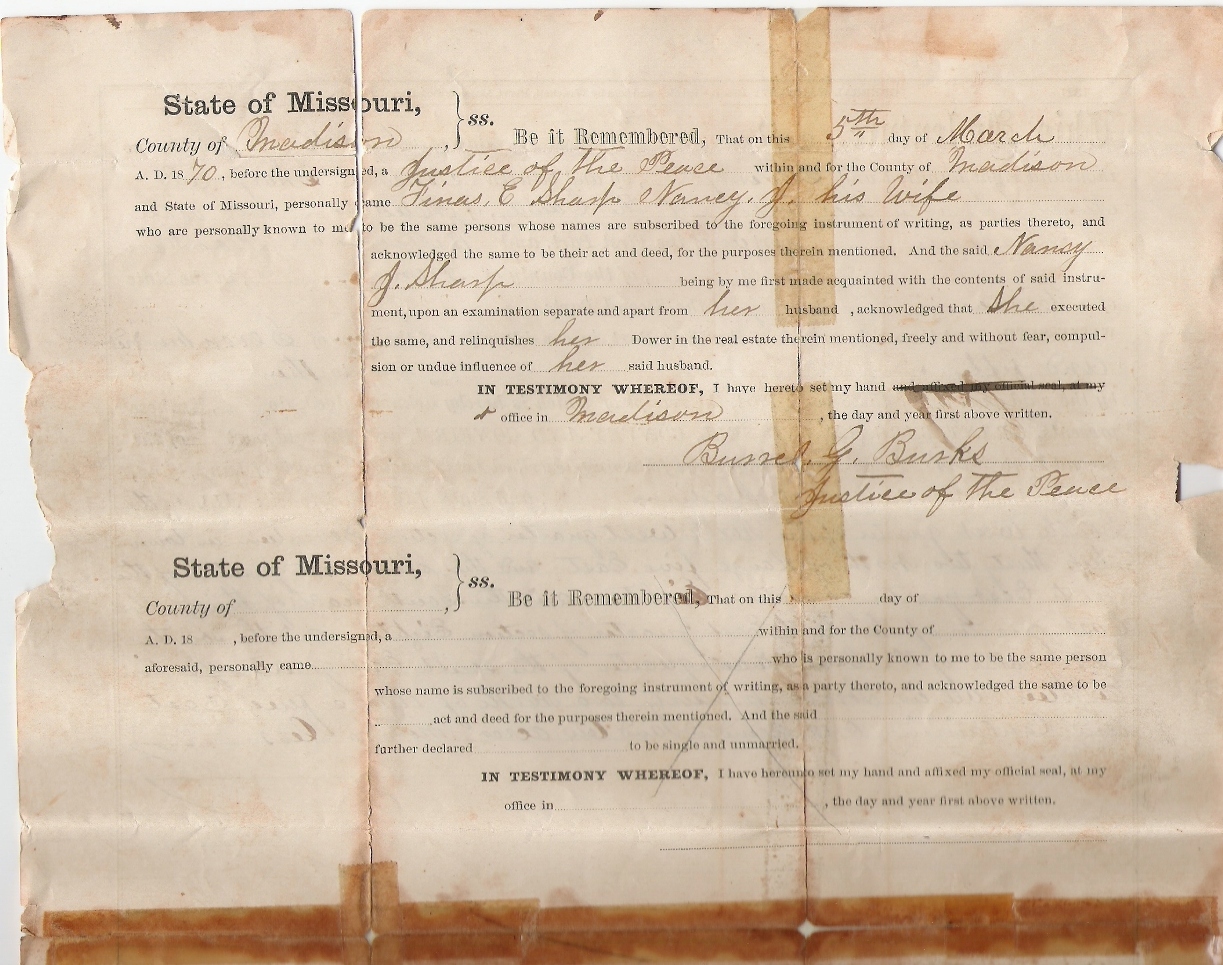 State of Missouri,
County of Madison , } ss. Be it Remembered, That on this 5th day of March
A. D. 1870, before the undersigned, a Justice of the Peace within and for the County of Madison
and State of Missouri, personally came Finas. E Sharp Nancy. J. his Wife
who are personally known to me to be the same persons whose names are subscribed to the foregoing instrument of writing, as parties thereto, and
acknowledged the same to be their act and deed, for the purposes therein mentioned. And the said Nancy
J. Sharp being by me first made acquainted with the contents of said instru-
ment, upon an examination separate and apart from her husband , acknowledged that She executed
the same, and relinquishes her Dower in the real estate therein mentioned, freely and without fear, compul-
sion or undue influence of her said husband.
IN TESTIMONY WHEREOF, I have hereto set my hand and affixed my official seal, at my
office in Madison , the day and year first above written.
Burrel. G. Burks
Justice of the Peace
State of Missouri,
County of , } ss. Be it Remembered, That on this day of
A. D. 18 , before the undersigned, a within and for the County of
aforesaid, personally came who is personally known to me to be the same person
whose name is subscribed to the foregoing instrument of writing, as a party thereto, and acknowledged the same to be
act and deed for the purposes therein mentioned. And the said
further declared to be single and unmarried.
IN TESTIMONY WHEREOF, I have hereunto set my hand and affixed my official seal, at my
office in , the day and year first above written.